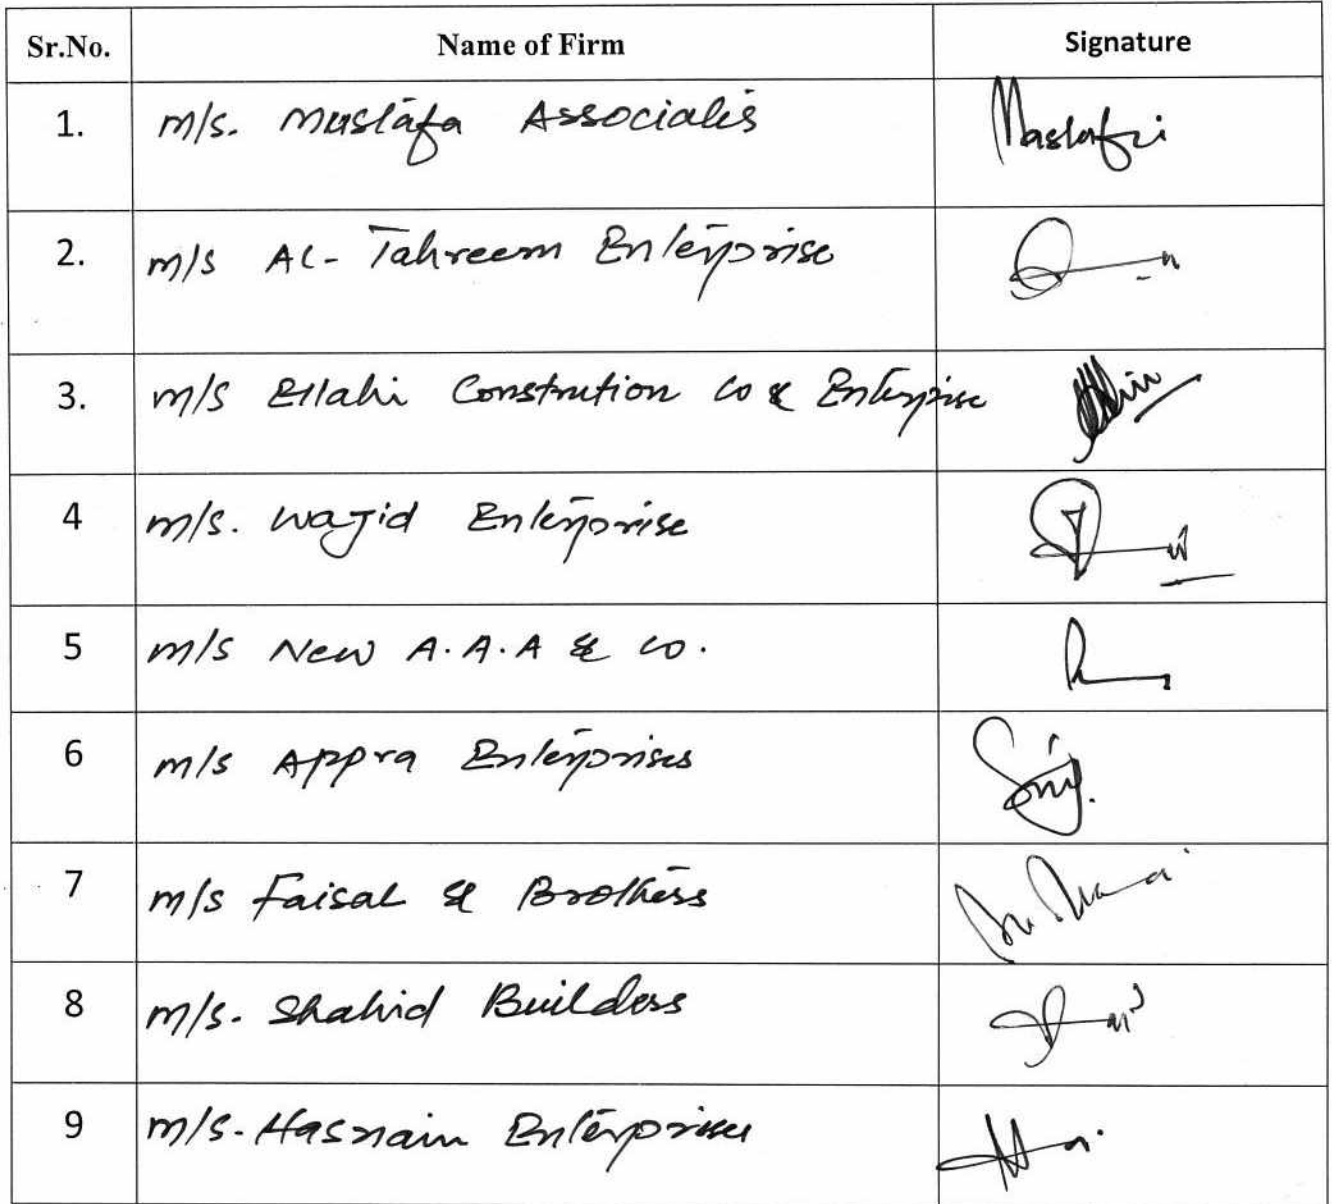 Sr.No. Name of Firm Signature
1. m/s. Mustafa Associates Mustafa
2. m/s AL- Tahreem Enterprise
3. m/s Ellahi Constrution co & Enterprise
4 m/s. Wajid Enterprise
5 m/s New A.A.A & co.
6 m/s Appra Enterprises
7 m/s Faisal & Brothers
8 m/s. Shahid Builders
9 m/s. Hasnain Enterprises